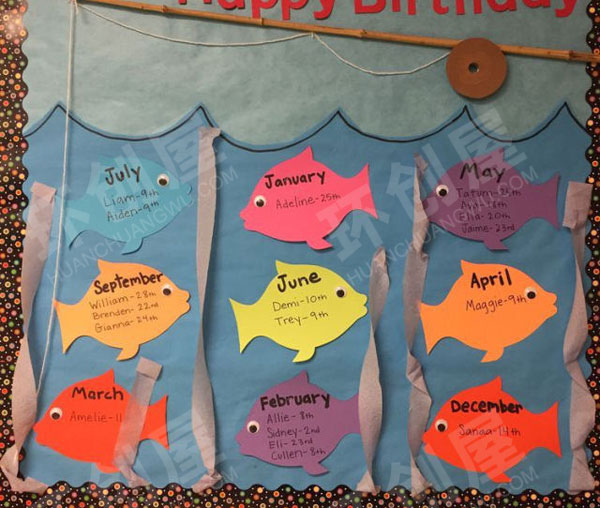 Happy Birthday
July
Liam-9th
Aiden-9th
January
Adeline-25th
May
Tatum-25th
Ava-18th
Ella-20th
Jaime-23rd
September
William-28th
Brenden-22nd
Gianna-24th
June
Demi-10th
Trey-9th
April
Maggie-9th
March
Amelie-11
February
Allie-8th
Sidney-2nd
Eli-23rd
Cullen-8th
December
Sanaa-14th
环创屋
HUANCHUANGWU.COM
环创屋
HUANCHUANGWU.COM